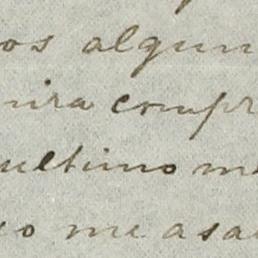 os algun
nira compr
ultimo m
o me asa